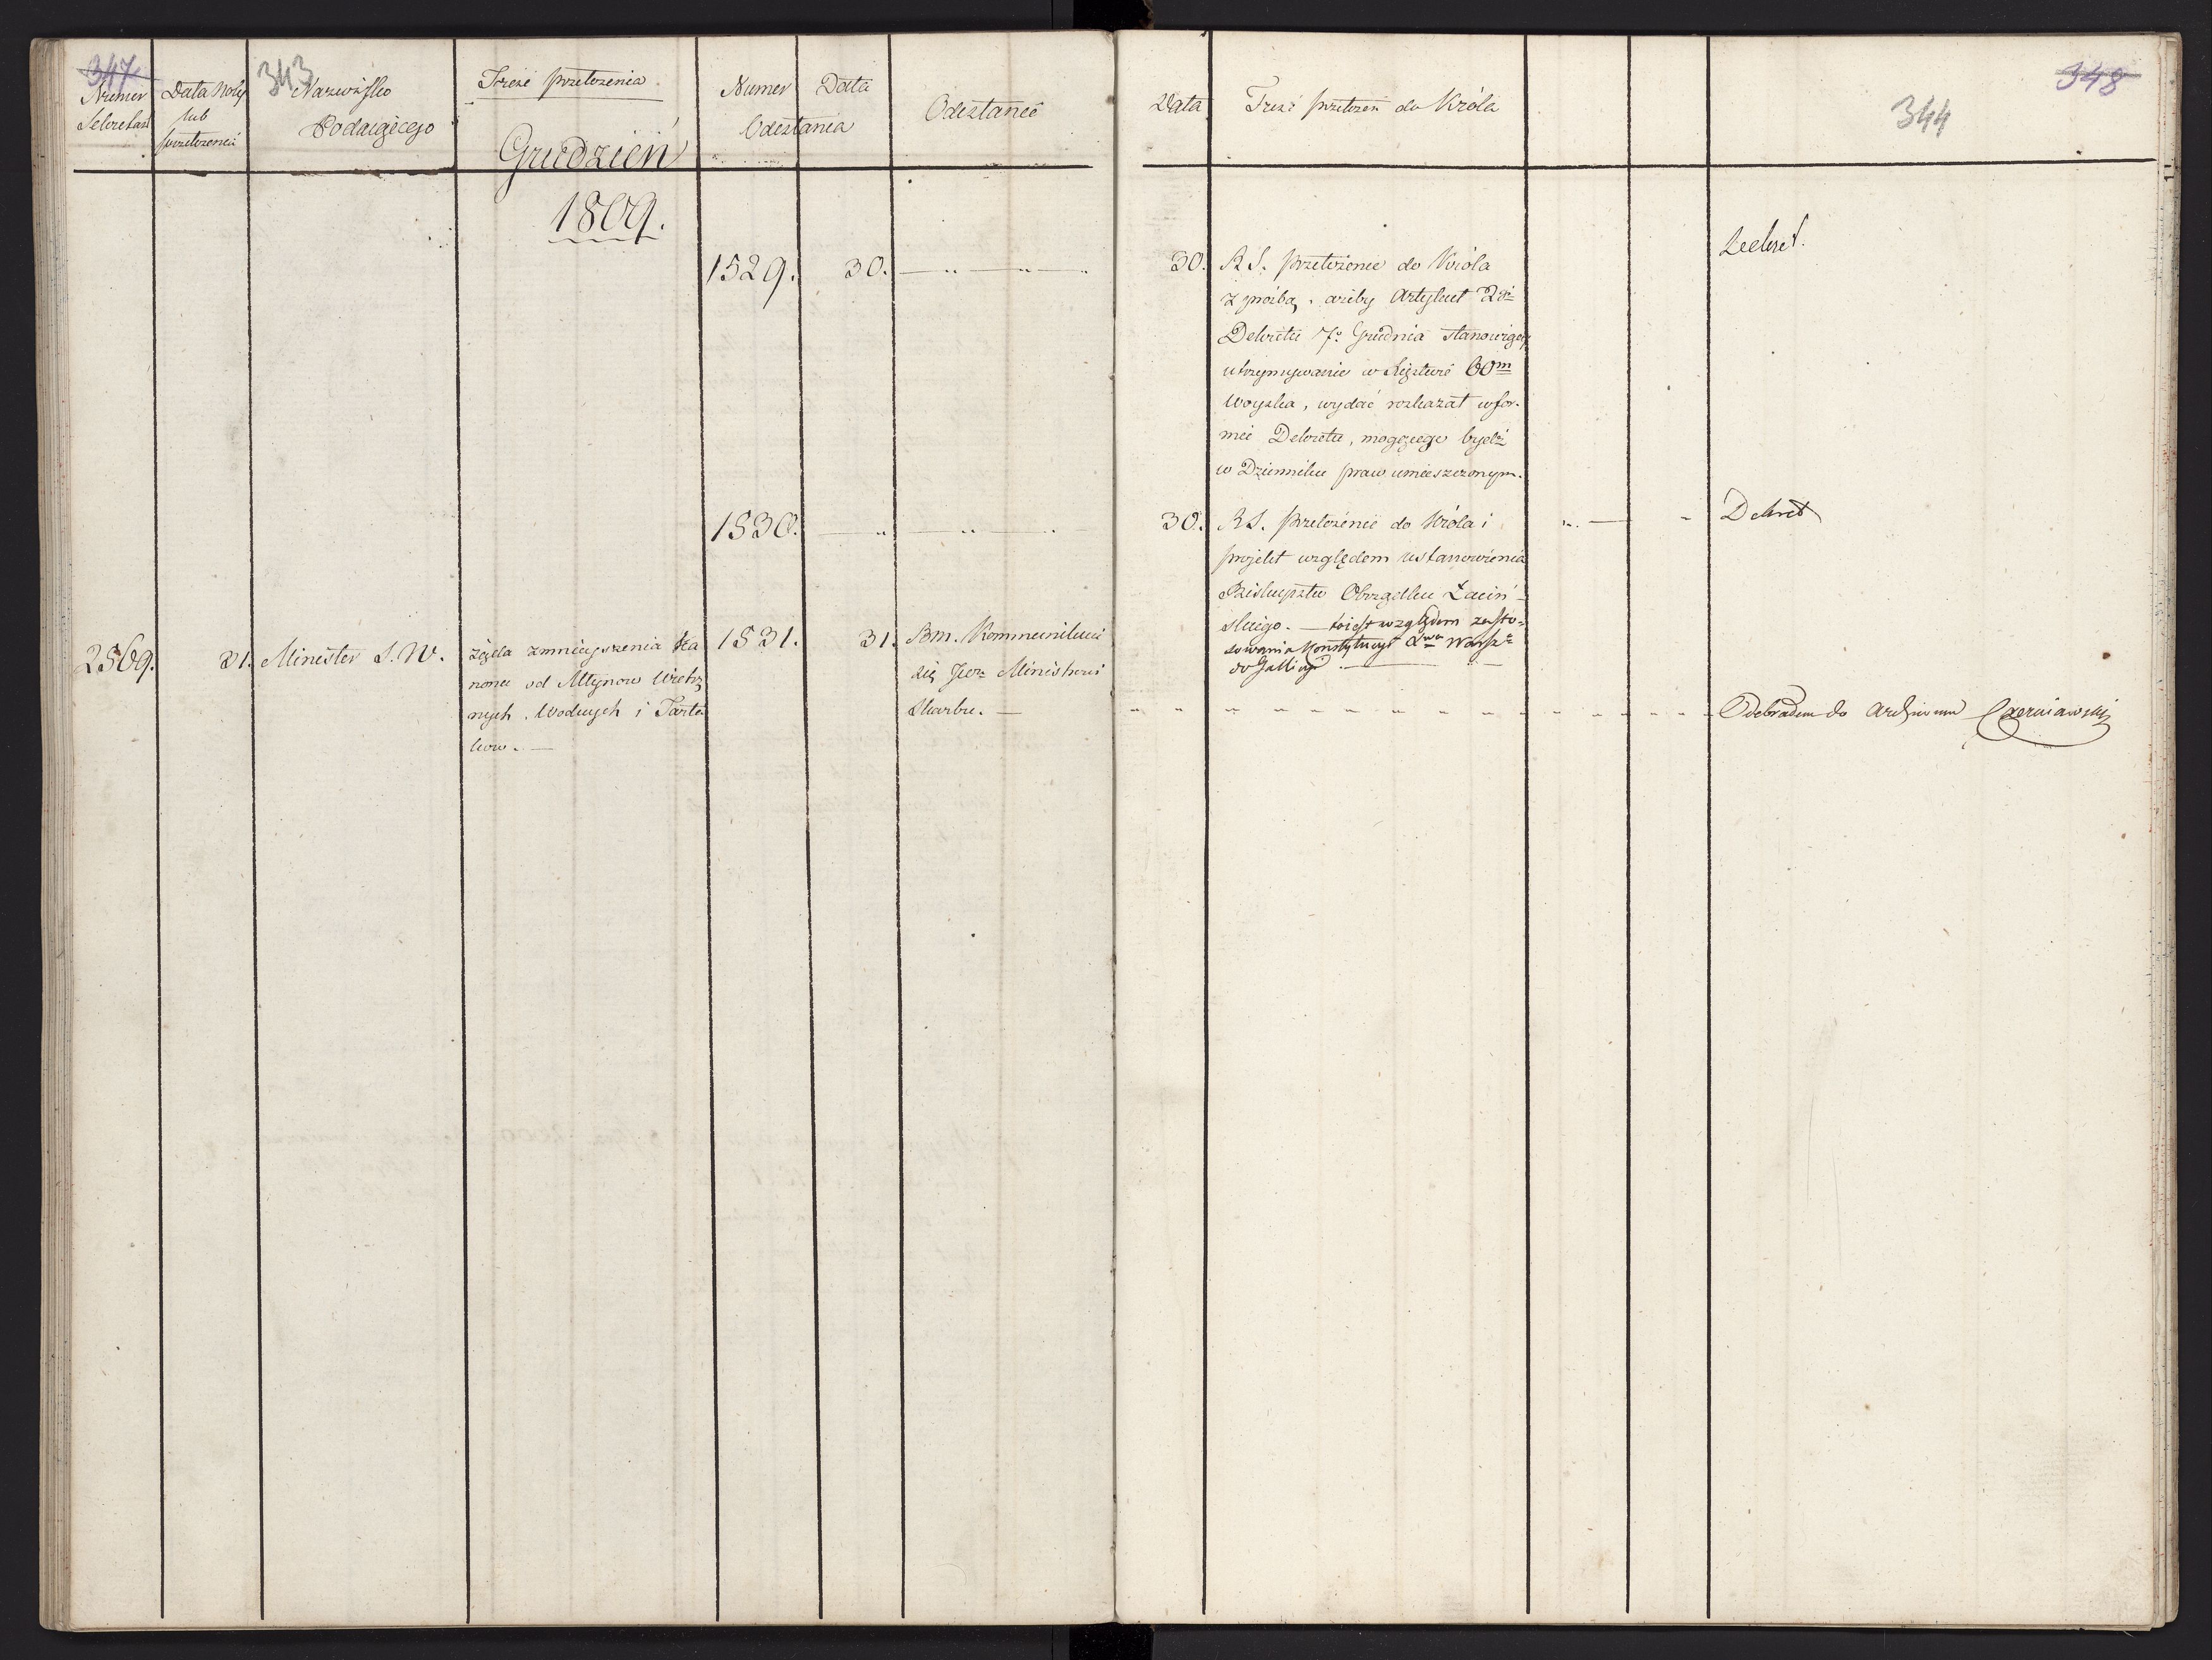 347
343
Numer
Sekretarż
Data Noty
lub
przełożenia
Nazwisko
Podaiącego
Treść przełożenia
Grudzień
1809.
Numer
Data
Odesłania
Odesłanie
1529. 30.
1530.
2569. 31. Minister S. W.
żąda zmnieyszenia Ka
nonu od Młynow Wietrz
nych, Wodnych i Tarta
kow. —
1531. 31.
Bm. Kommunikuie
się Ministrowi
Skarbu. —
348
344
Data
Treść przełożeń do Króla
30. RS. Przełożenie do Króla
z prożbą, ażeby Artykuł
Dekretu 7º Grudnia stanowiący
utrzymywanie w Xięztwie 60m
Woyska, wydać rozkazał w for-
mie Dekretu, mogącego bydź
w Dzienniku praw umieszczonym.
Dekret.
30. RS. Przełożenie do Króla i
projekt względem ustanowienia
Biskupstw Obrządku Łaciń-
skiego. — toiest względem zasto-
sowania Konstytucyi Xwa Warsz
do Gallicyi
Dekret
Odebrałem do Archiwum Czerniawski